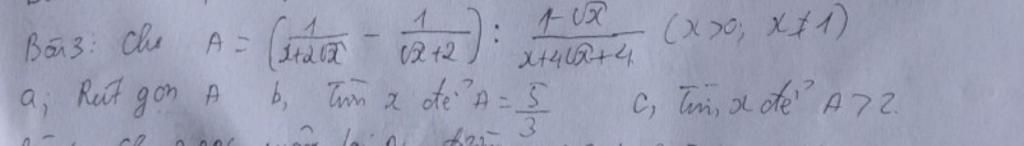 Bài 3: Cho A = (1/(x+2√x) - 1/(√x+2)) : (1-√x)/(x+4√x+4) (x>0; x≠1)
a, Rút gọn A b, Tìm x để A = 5/3 c, Tìm x để A > 2.